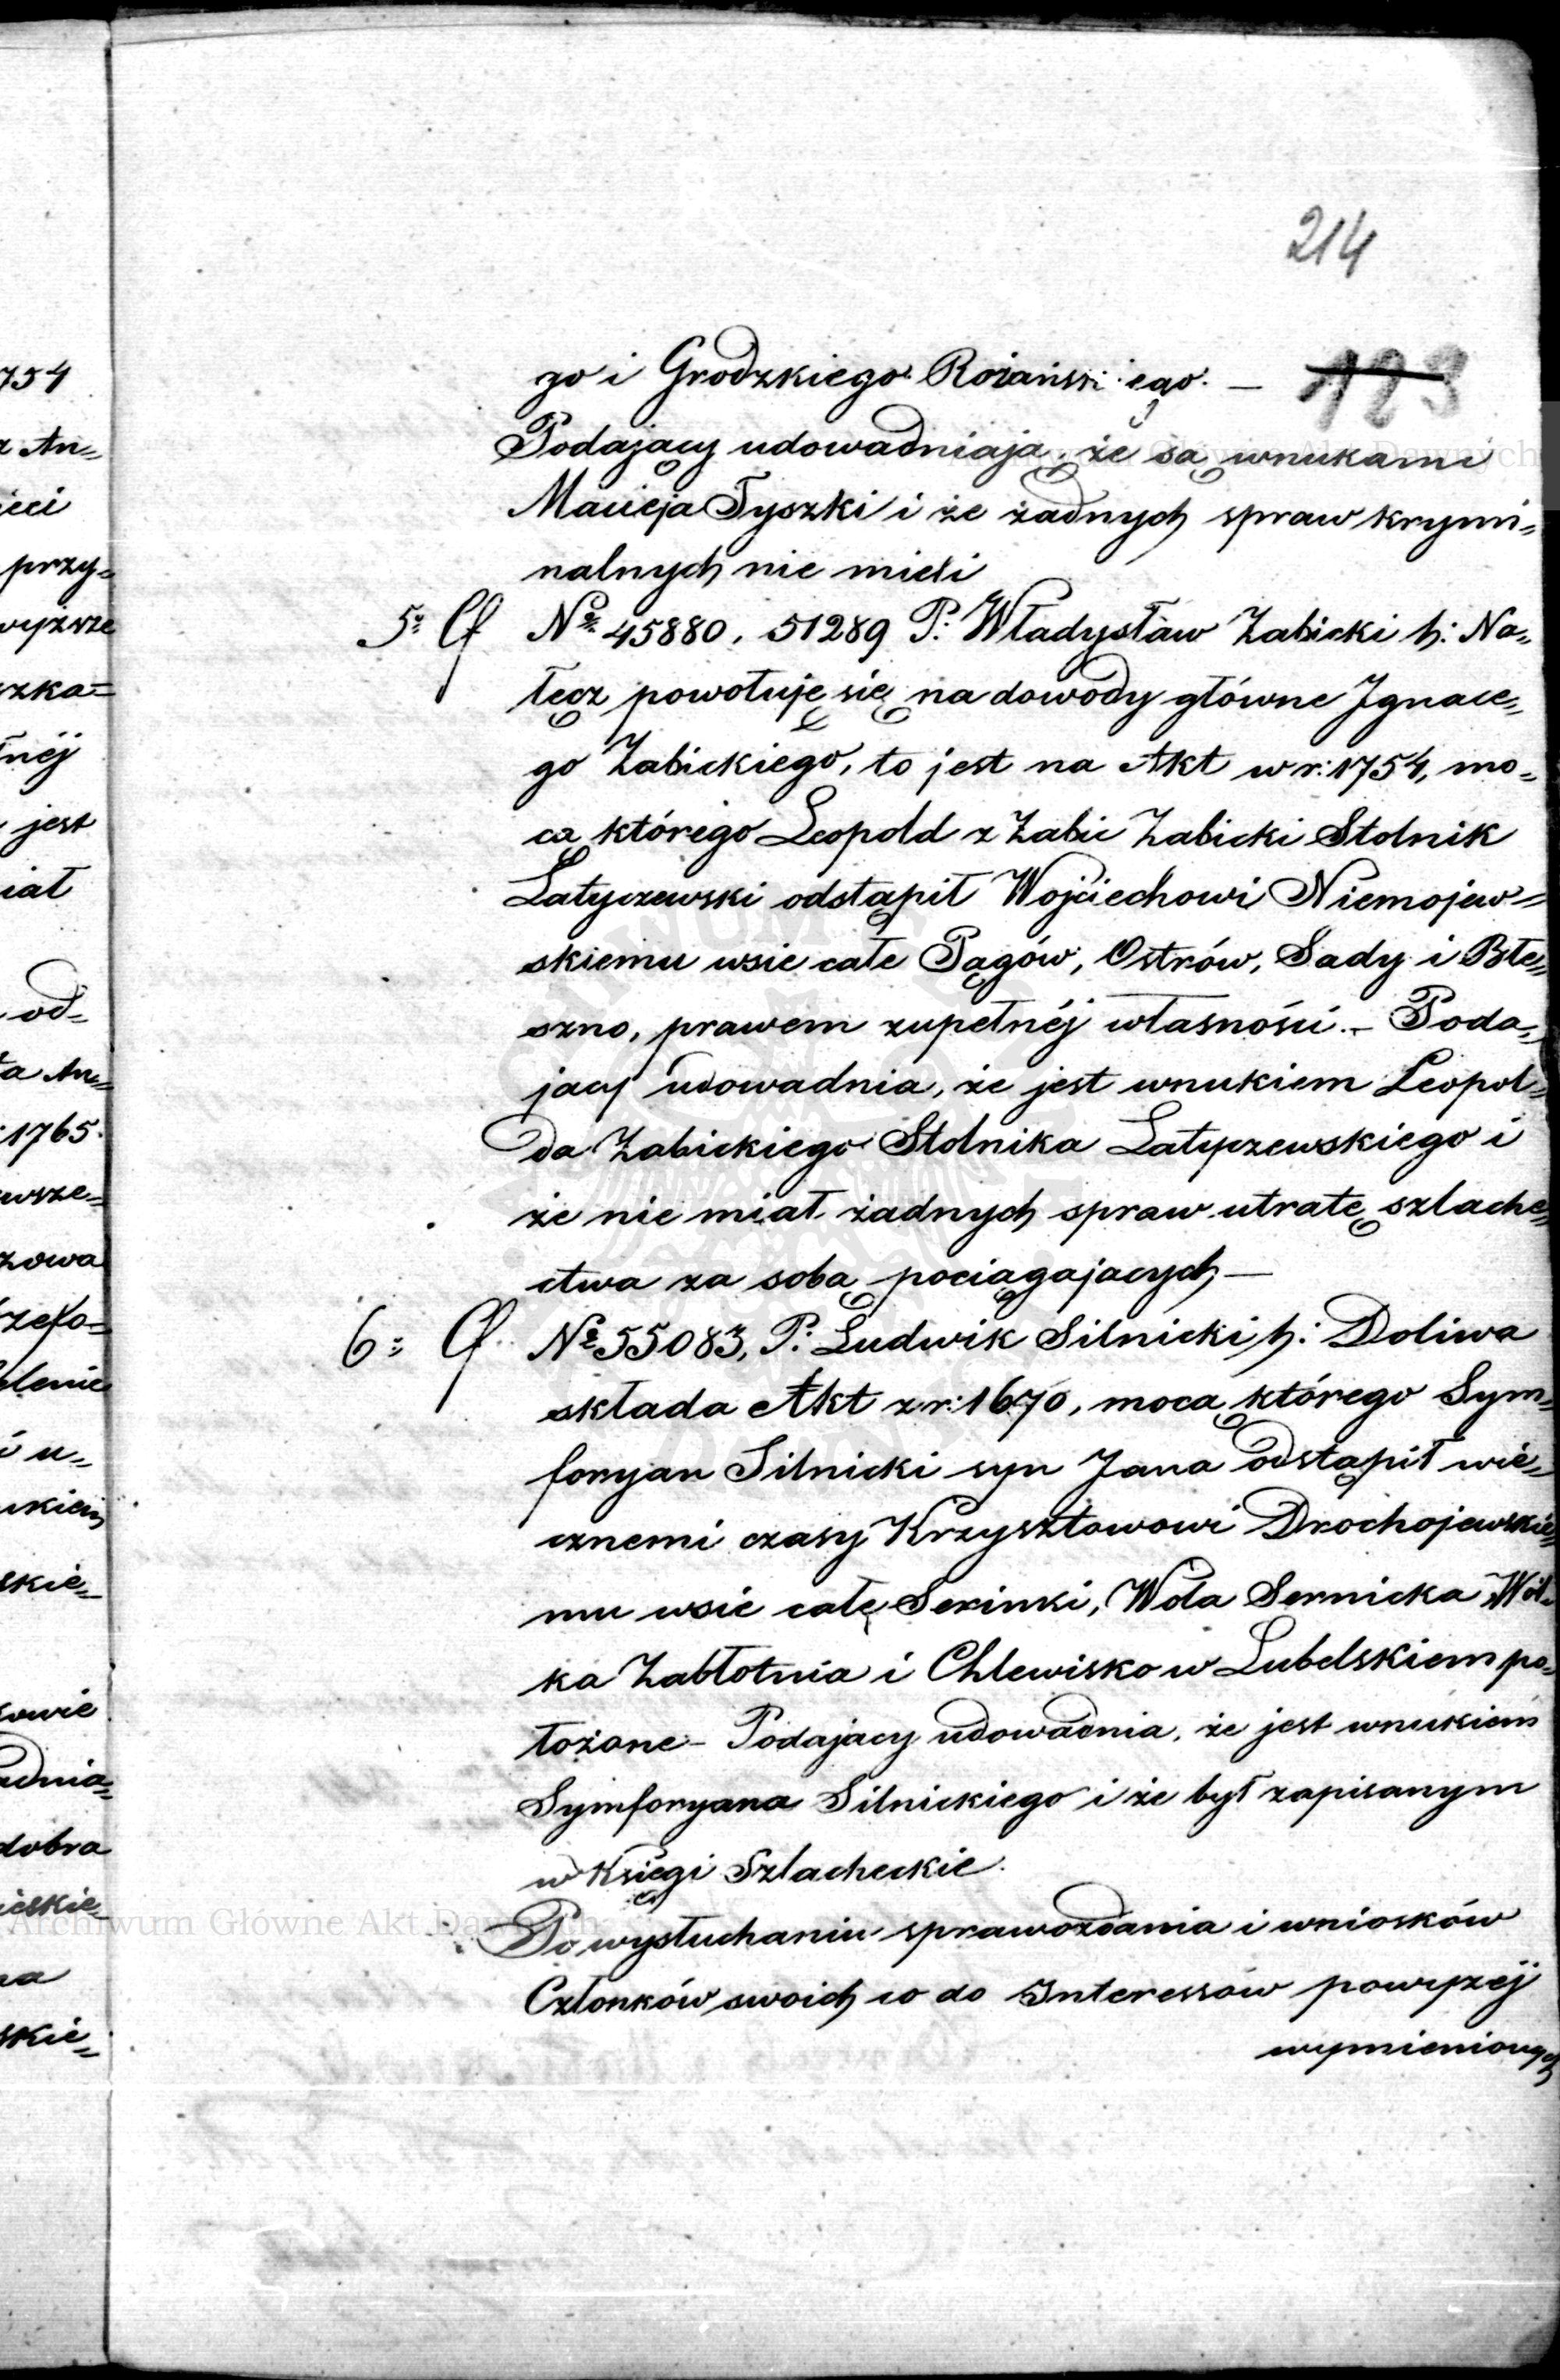 214
123
go i Grodzkiego Rożańskiego. —
Podający udowadniają, że są wnukami
Macieja Tyszki i że żadnych spraw krymi„
nalnych nie mieli
5o Cf No 45880, 51289 P. Władysław Zabicki h: Na„
łęcz powołuje się na dowody główne Ignace„
go Zabickiego, to jest na Akt w r: 1754, mo„
cą którego Leopold z Zabic Zabicki Stolnik
Latyczewski odstąpił Wojciechowi Niemojew„
skiemu wsie całe Pągów, Ostrów, Sady i Błe„
szno, prawem zupełnéj własności. – Poda„
jacy udowadnia, że jest wnukiem Leopol„
da Zabickiego Stolnika Latyczewskiego i
że nie miał żadnych spraw utratę szlache„
ctwa za sobą pociągajacych —
6o Cf No 55083, P. Ludwik Silnicki h: Doliwa
składa Akt z r: 1670, mocą którego Sym„
foryan Silnicki syn Jana odstąpił wie„
cznemi czasy Krzysztowowi Drochojewskie„
mu wsie całe Serinki, Wola Sernicka Wól„
ka Zabłotnia i Chlewisko w Lubelskiem po„
łożone – Podajacy udowadnia, że jest wnukiem
Symforyana Silnickiego i że był zapisanym
w Księgi Szlacheckie.
Po wysłuchaniu sprawozdania i wniosków
Członków swoich co do Interessów powyżéj
wymienionych
754
An„
przy„
wyższe
szka„
jest
iał
od„
An„
1765.
zowa
u„
skie„
dobra
skie„
Archiwum Główne Akt Dawnych